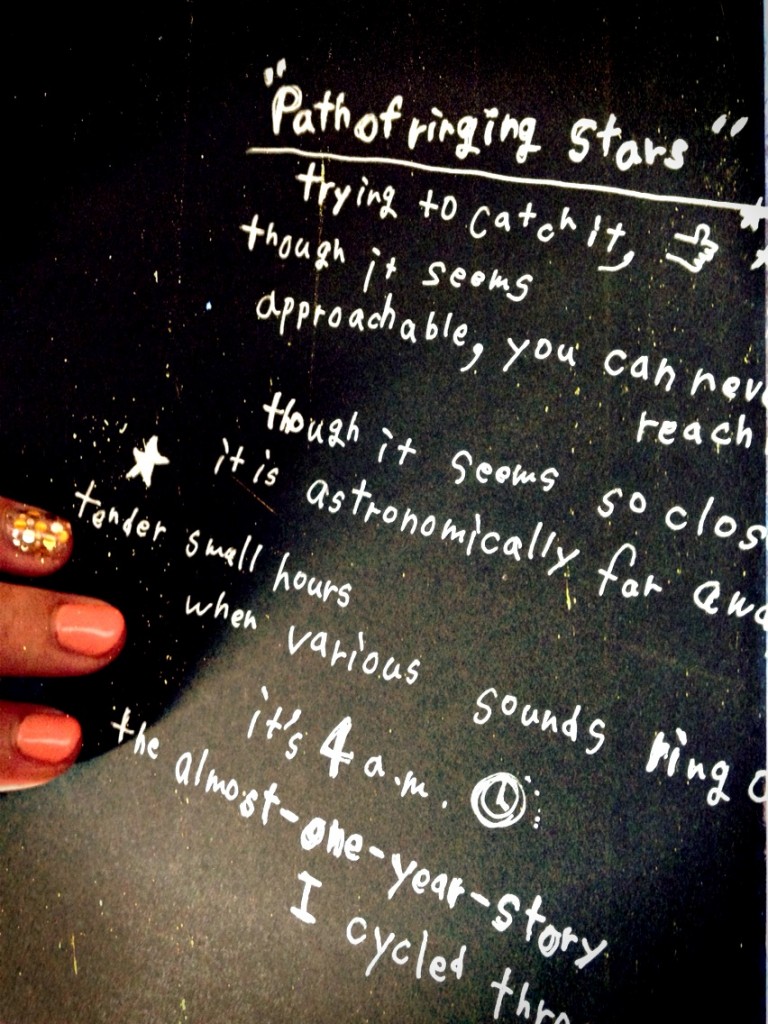 "Path of ringing stars"
trying to catch it,
though it seems
approachable, you can nev
reach
though it seems so clos
it is astronomically far awa
tender small hours
when various sounds ring
it's 4 a.m.
the almost-one-year-story
I cycled thro